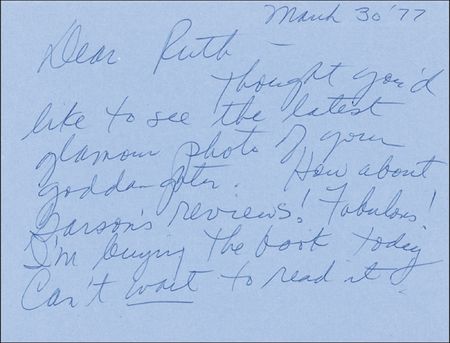 March 30 '77
Dear Ruth —
Thought you'd
like to see the latest
glamour photo of your
goddaughter. How about
Garson's reviews! Fabulous!
I'm buying the book today
Can't wait to read it!